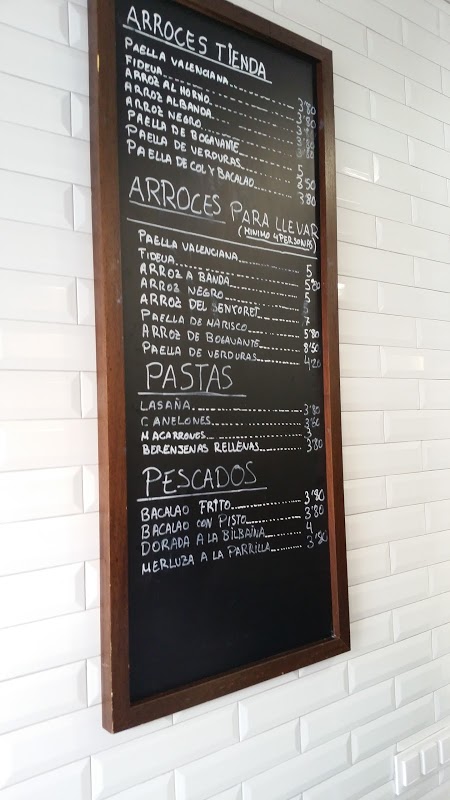 ARROCES TIENDA
PAELLA VALENCIANA
FIDEUA
ARROZ AL HORNO
ARROZ ALBANDA
ARROZ NEGRO
PAELLA DE BOGAVANTE 5
PAELLA DE VERDURAS
PAELLA DE COL Y BACALAO 3'80
ARROCES PARA LLEVAR
(MINIMO 4 PERSONAS)
PAELLA VALENCIANA 5
FIDEUA
ARROZ A BANDA 5
ARROZ NEGRO
ARROZ DEL SENYORET
PAELLA DE MARISCO 5'80
ARROZ DE BOGAVANTE 8'50
PAELLA DE VERDURAS 4'20
PASTAS
LASAÑA 3'80
CANELONES
MACARRONES 3
BERENJENAS RELLENAS 3'80
PESCADOS
BACALAO FRITO 3'80
BACALAO CON PISTO 3'80
DORADA A LA BILBAÍNA 4
MERLUZA A LA PARRILLA